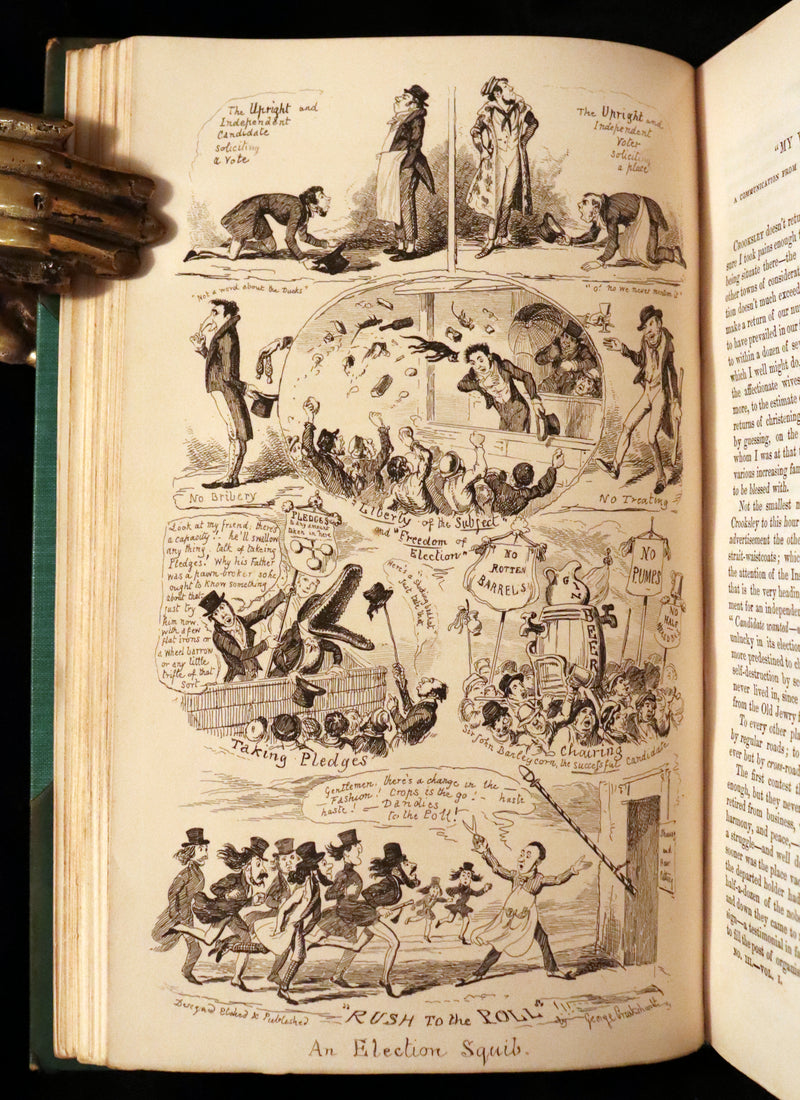 The Upright and
Independent
Candidate
soliciting
a Vote
The Upright and
Independent
Voter
soliciting
a place
"Not a word about the Ducks"
"O! no We never mention it"
No Bribery
No Treating
"Liberty of the Subject"
and "Freedom of
Election"
"Look at my friend, there's
a capacity!! he'll swallow
any thing. talk of takeing
Pledges! Why his Father
was a pawn-broker so he
ought to know something
about that
just try
him now.
with a few
flat irons or
a wheel barrow
or any little
trifle of that
Sort
PLEDGES
to any amount
taken in here
Here's a
just
Taking Pledges
NO
ROTTEN
BARRELS
NO
PUMPS
HALF
GIN
BEER
Chairing
Sir John Barleycorn, the successful Candidate
Gentlemen, there's a change in the
Fashion! Crops is the go! - haste
haste! - Dandies
to the Poll!
Shaving
and
Hair
Cutting
Designed Etched & Published
"RUSH To the POLL" !!!
by George Cruikshank
An Election Squib.
"MY
A COMMUNICATION FROM
CROOKSLEY doesn't retur
sure I took pains enough t
being situate there—the
other towns of considerat
tion doesn't much exceed
make a return of our nu
to have prevailed in our
to within a dozen of sev
which I well might do.
the affectionate wives
more, to the estimate
returns of christening
by guessing, on the
whom I was at that
various increasing fam
to be blessed with.
Not the smallest
Crooksley to this hour
advertisement the othe
strait-waistcoats; whic
the attention of the In
that is the very headin
ment for an independe
"Candidate wanted—
unlucky in its election
more predestined to el
self-destruction by se
never lived in, since
from the Old Jewry
To every other pla
by regular roads; to
ever but by cross-road
The first contest t
enough, but they never
retired from business,
harmony, and peace,—
a struggle—and well d
sooner was the place va
the departed holder had
half-a-dozen of the nob
and down they came to
sign—a testimonial in fa
to fill the post of organis
NO. III.—VOL. I.